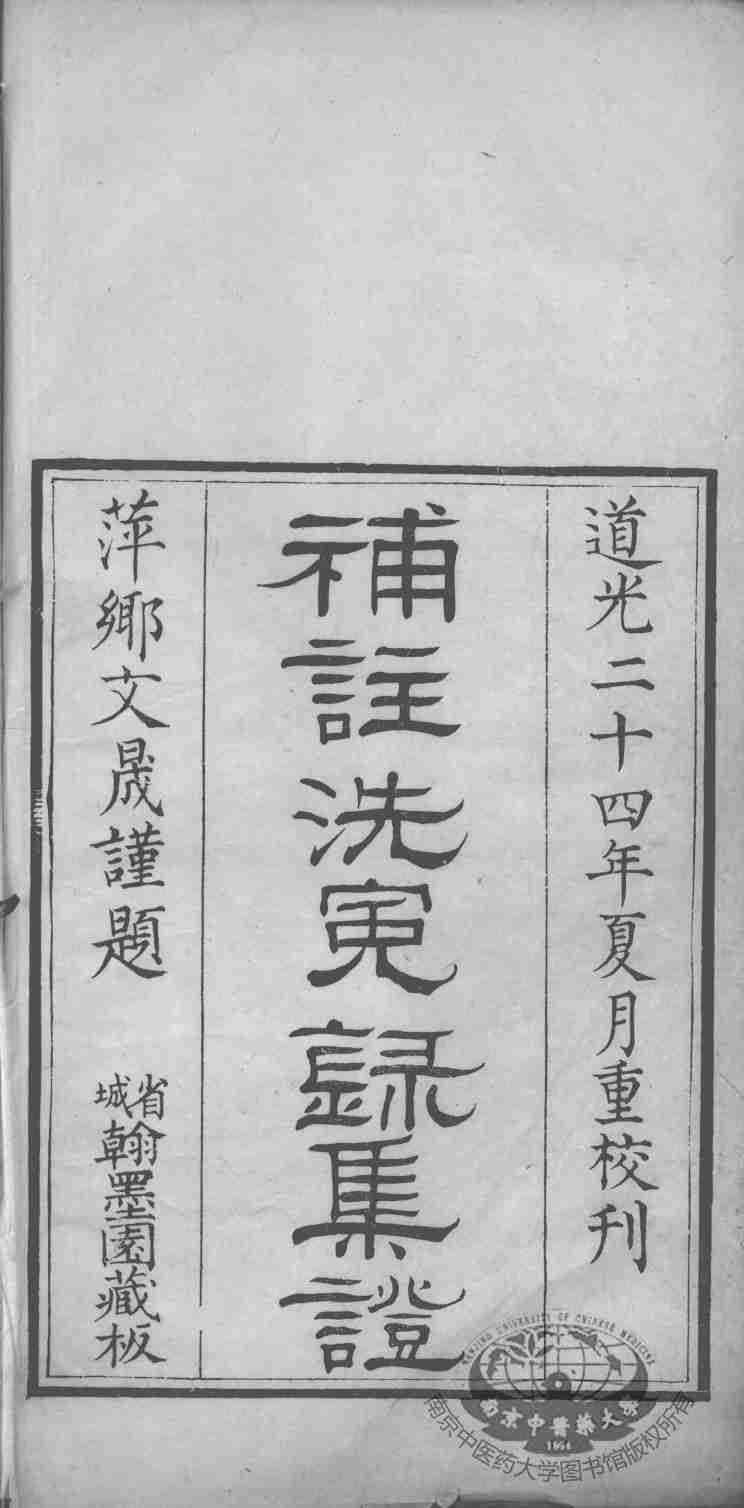 道光二十四年夏月重校刊
補註洗冤録集證
萍鄉文晟謹題
省城翰墨園藏板
NANJING UNIVERSITY OF CHINESE MEDICINE
南京中醫藥大學
1954
南京中医药大学图书馆版权所有